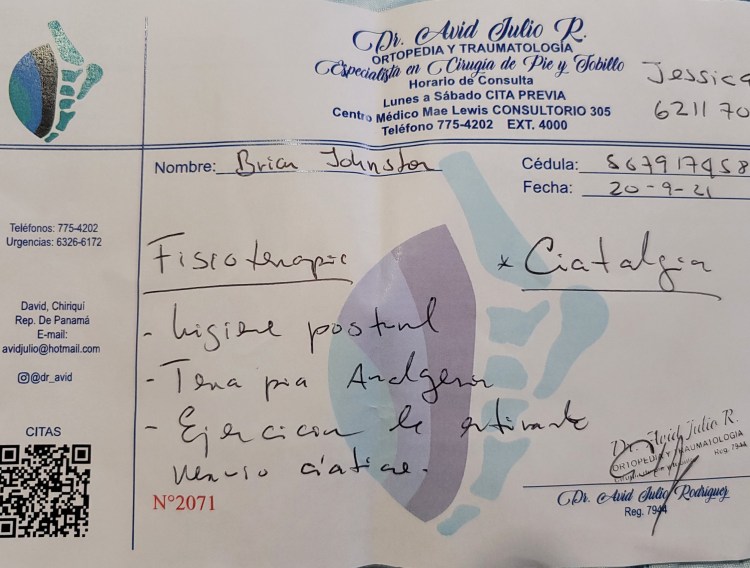 Dr. Avid Julio R.
ORTOPEDIA Y TRAUMATOLOGÍA
Especialista en Cirugía de Pie y Tobillo
Horario de Consulta
Lunes a Sábado CITA PREVIA
Centro Médico Mae Lewis CONSULTORIO 305
Teléfono 775-4202 EXT. 4000
Jessica
6211 70
Nombre: Brian Johnston
Cédula: 567917458
Fecha: 20-9-21
Teléfonos: 775-4202
Urgencias: 6326-6172
David, Chiriquí
Rep. De Panamá
E-mail:
avidjulio@hotmail.com
@dr_avid
CITAS
Fisioterapia
* Ciatalgia
- higiene postural
- Terapia Analgesica
- Ejercicios de estiramiento
nervio ciatico.
N°2071
Dr. Avid Julio R.
ORTOPEDIA Y TRAUMATOLOGIA
Reg. 7944
Dr. Avid Julio Rodríguez
Reg. 7944